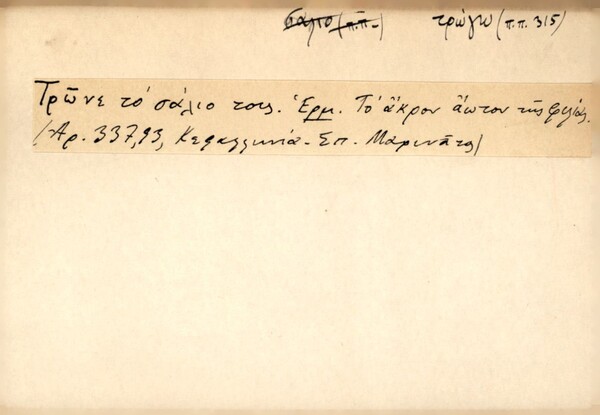 σάλιο (π.π.) τρώγω (π.π. 315)
Τρῶνε τό σάλιο τους. Ἑρμ. Τό ἄκρον ἄωτον τῆς φιλίας.
(Ἀρ. 337,93, Κεφαλληνία - Σπ. Μαρινᾶτος)